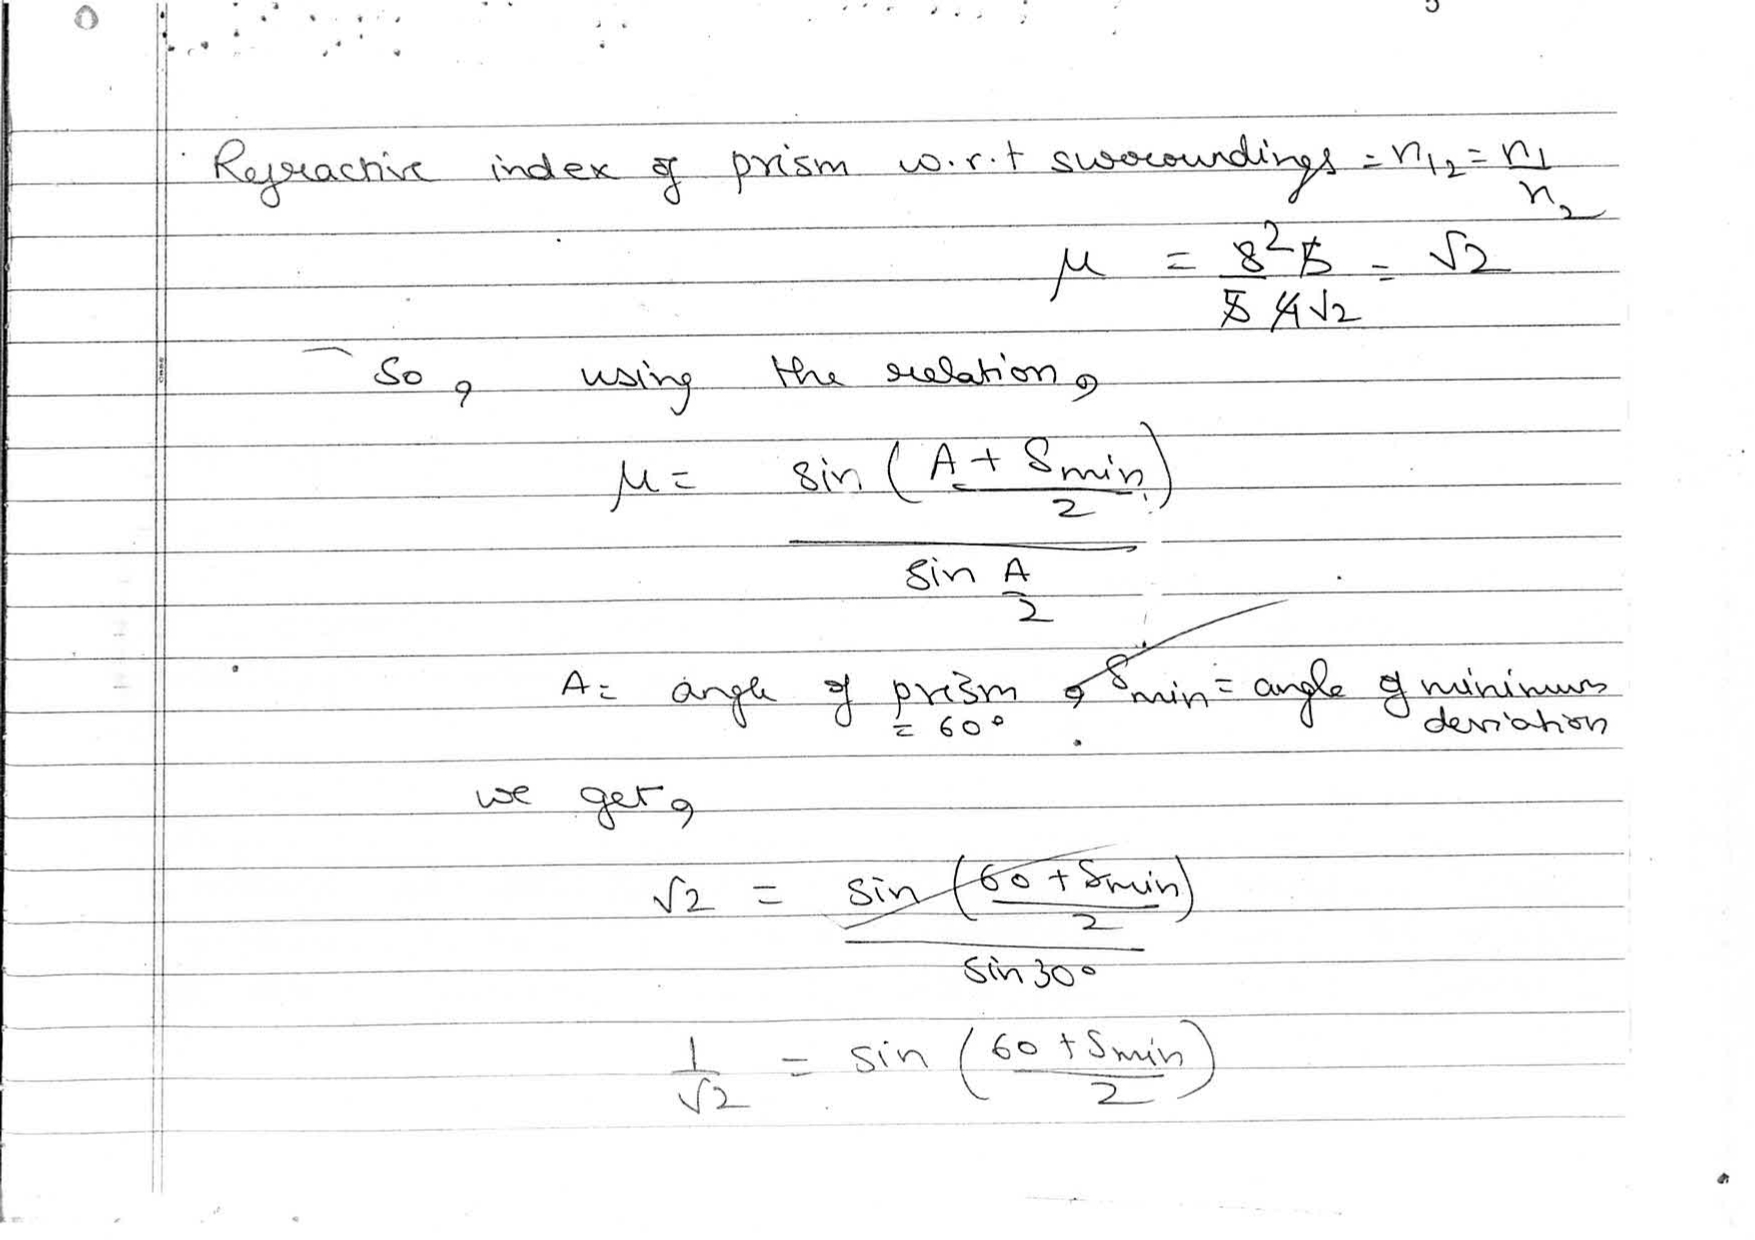 Refractive index of prism w.r.t surroundings = n₁₂ = n₁/n₂
μ = 8² 5 / 5 4√2 = √2
So, using the relation,
μ = sin (A + δmin / 2) / sin A/2
A = angle of prism = 60°, δmin = angle of minimum deviation
we get,
√2 = sin (60 + δmin / 2) / sin 30°
1/√2 = sin (60 + δmin / 2)